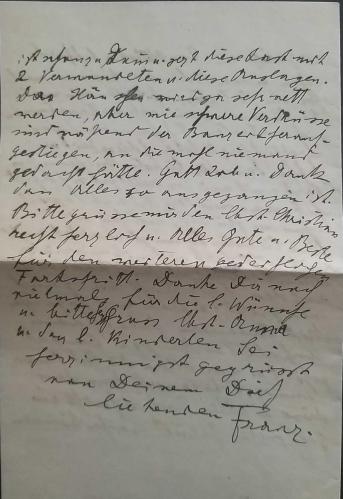 ist schon zu Dumm u. jezt diese Last mit
2 Verwundeten u. diese Auslagen.
Das Häuschen wird ja sehr nett
werden, aber wie schwere Verdrüsse
sind während der Bauzeit herauf-
gestiegen, an die wohl niemand
gedacht hätte. Gott Lob u. Dank
dass Alles so ausgegangen ist.
Bitte grüsse mir den lbst Christian
recht herzlich u. Alles Gute u. Beste
für den weiteren
Fortschritt. Danke Dir noch
vielmals für die l. Wünsche
u. bitte Gruss lbst.
u. den l. Kinderlen Sei
herzinnigst gegrüsst
von Deinem Dich
liebenden Franz.